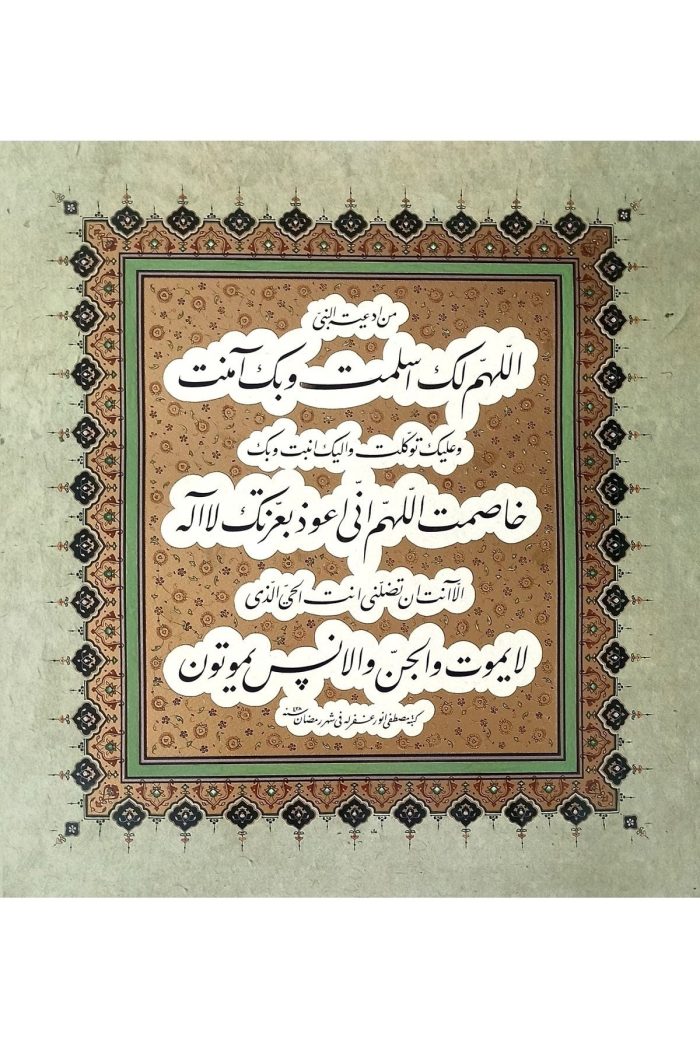 من ادعية النبي
اللهم لك اسلمت وبك آمنت
وعليك توكلت واليك انبت وبك
خاصمت اللهم انّى اعوذ بعزتك لا اله
الا انت ان تضلنى انت الحىّ الذى
لا يموت والجنّ والانس يموتون
كتبه مصطفى انور غفر له فى شهر رمضان سنه